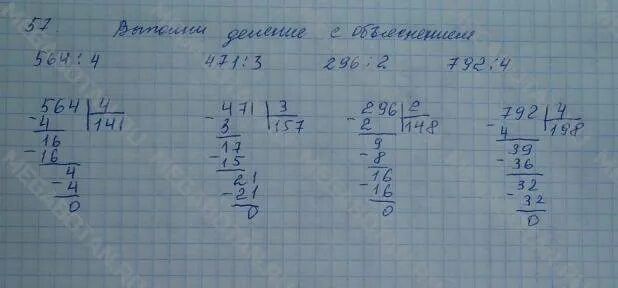 57. Выполни деление с объяснением
564:4 471:3 296:2 792:4
-564|4 -471|3 -296|2 -792|4
4 |141 3 |157 2 |148 4 |198
16 17 9 39
-16 -15 -8 -36
4 21 16 32
-4 -21 -16 -32
0 0 0 0
MEGARESHTAN.RU